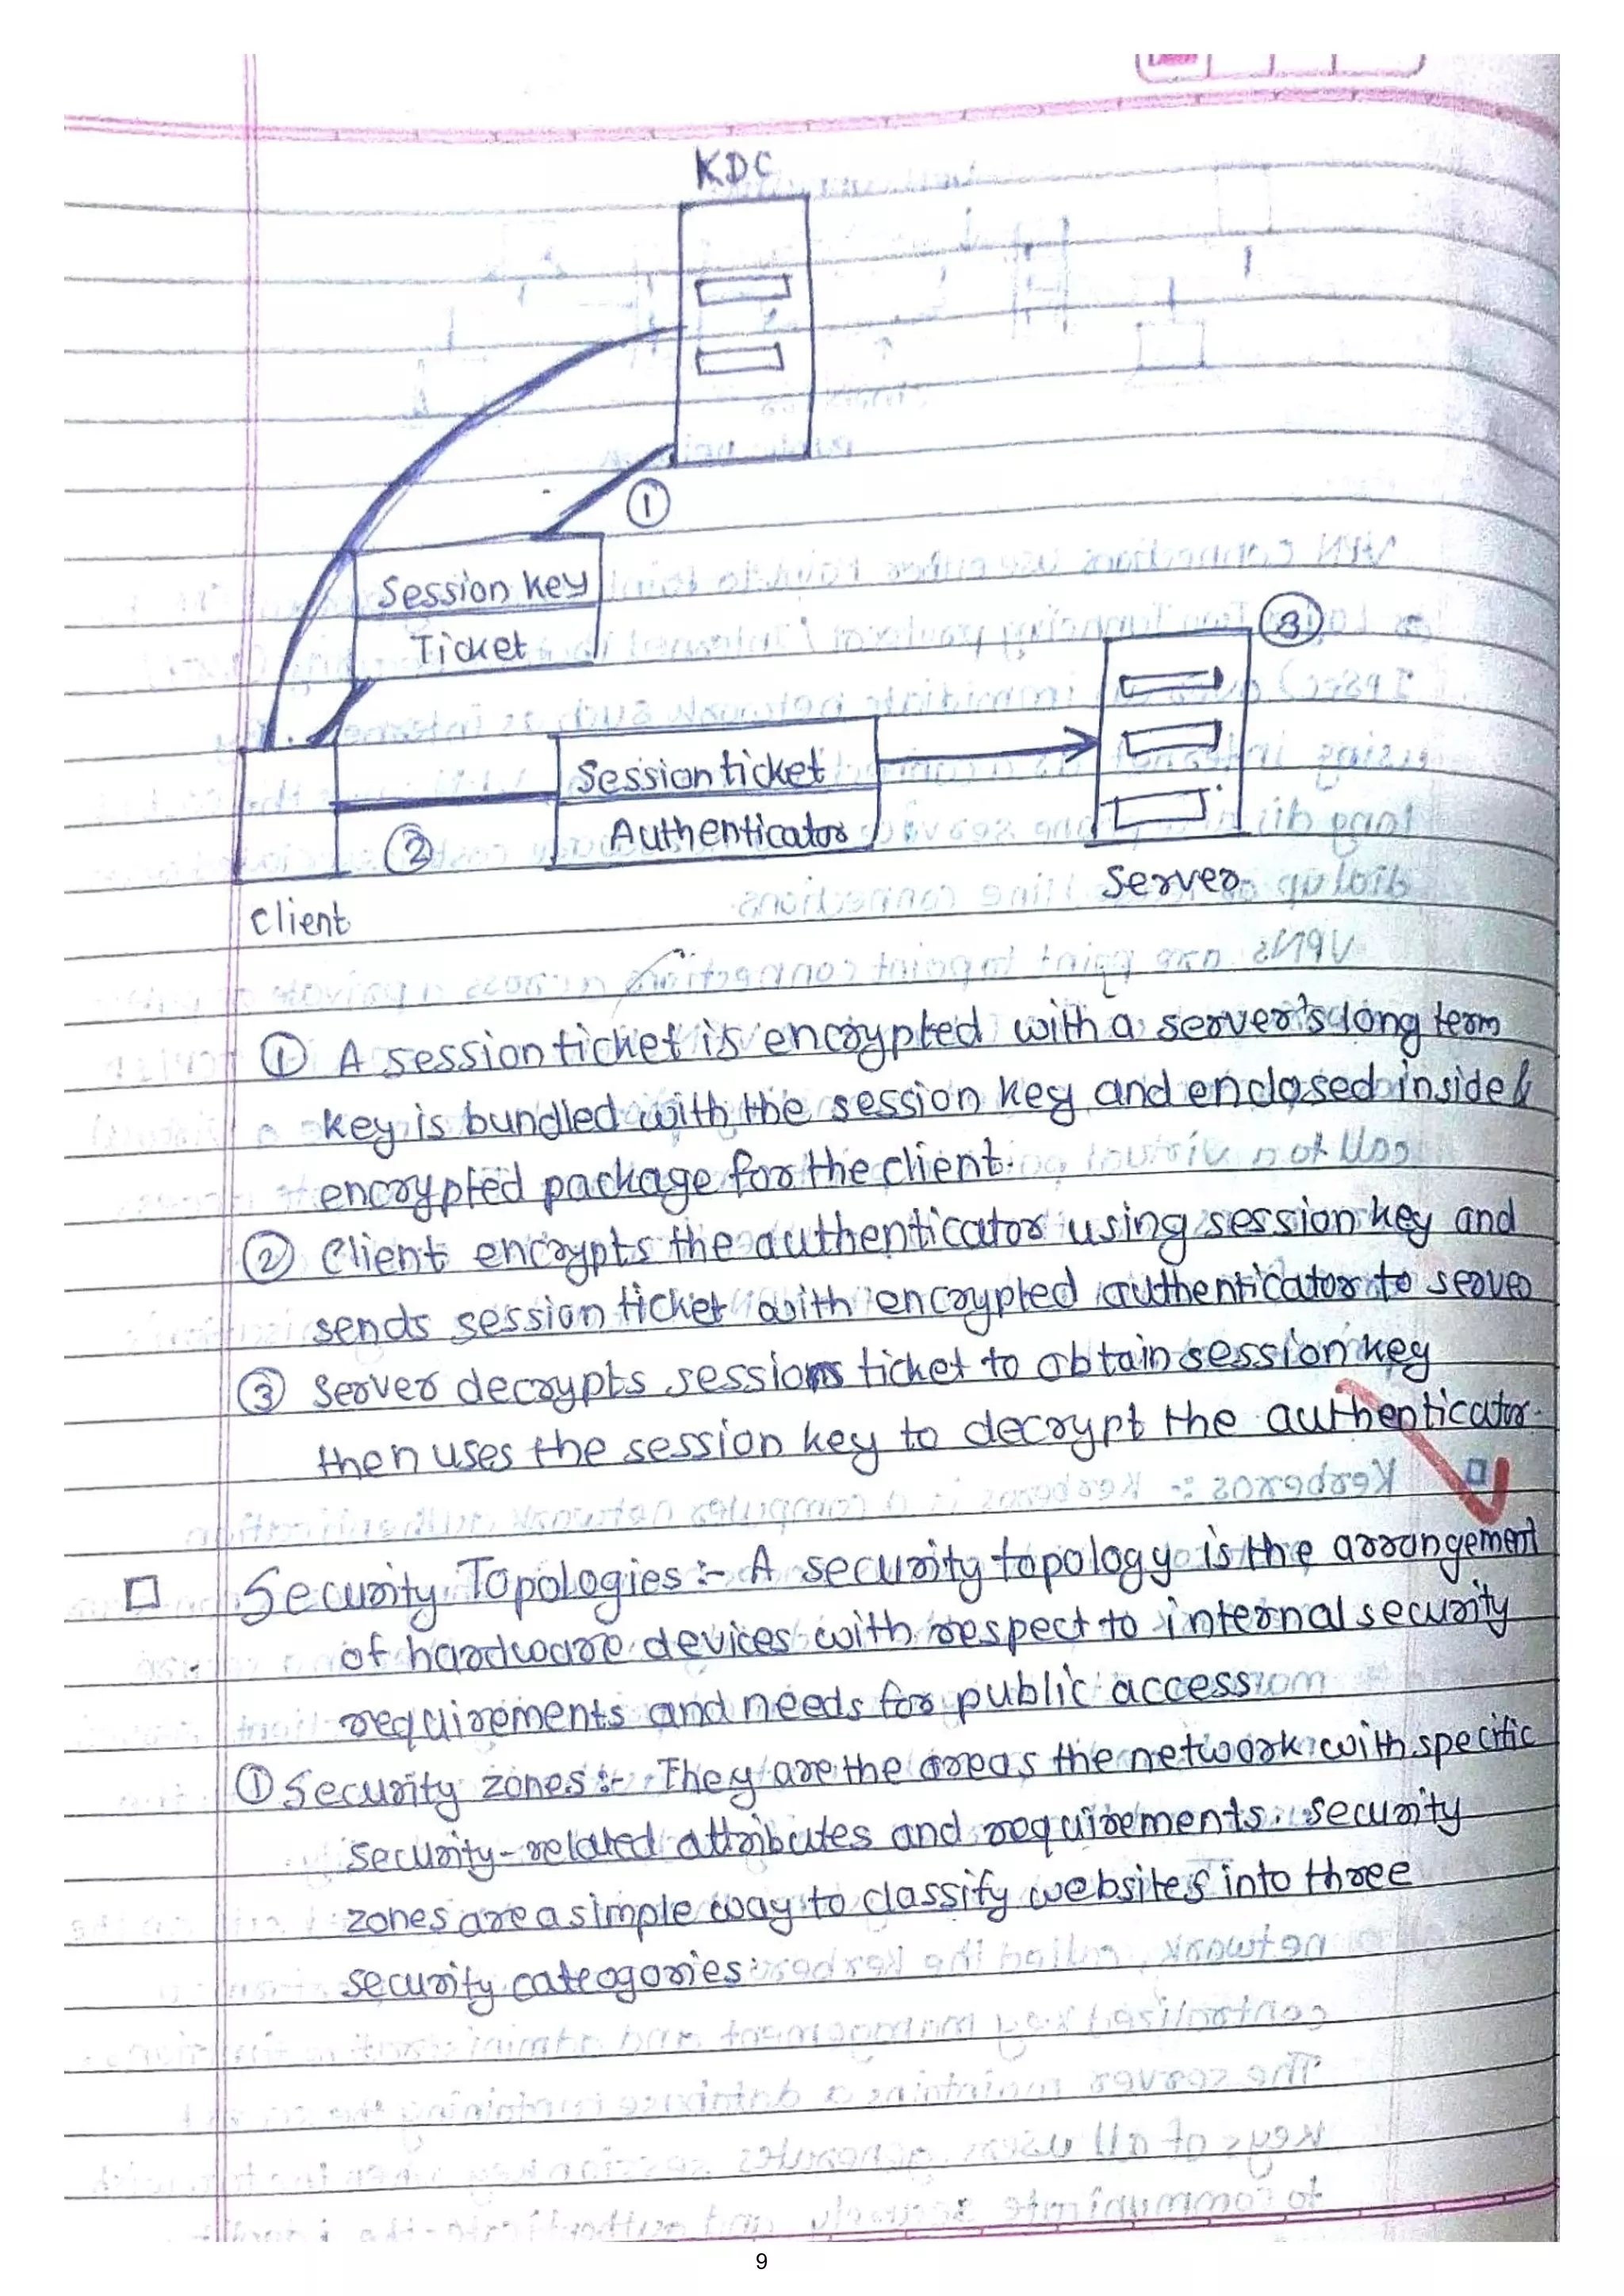 KDC
①
Session key
Ticket
③
Session ticket
Authenticator
②
Server
Client
① A session ticket is encrypted with a server's long term
key is bundled with the session key and enclosed inside &
encrypted package for the client.
② Client encrypts the authenticator using session key and
sends session ticket with encrypted authenticator to server
③ Server decrypts session ticket to obtain session key
then uses the session key to decrypt the authenticator.
Security Topologies :- A security topology is the arrangement
of hardware devices with respect to internal security
requirements and needs for public access
① Security zones :- They are the areas the network with specific
security-related attributes and requirements. security
zones are a simple way to classify websites into three
security cateogories:
9